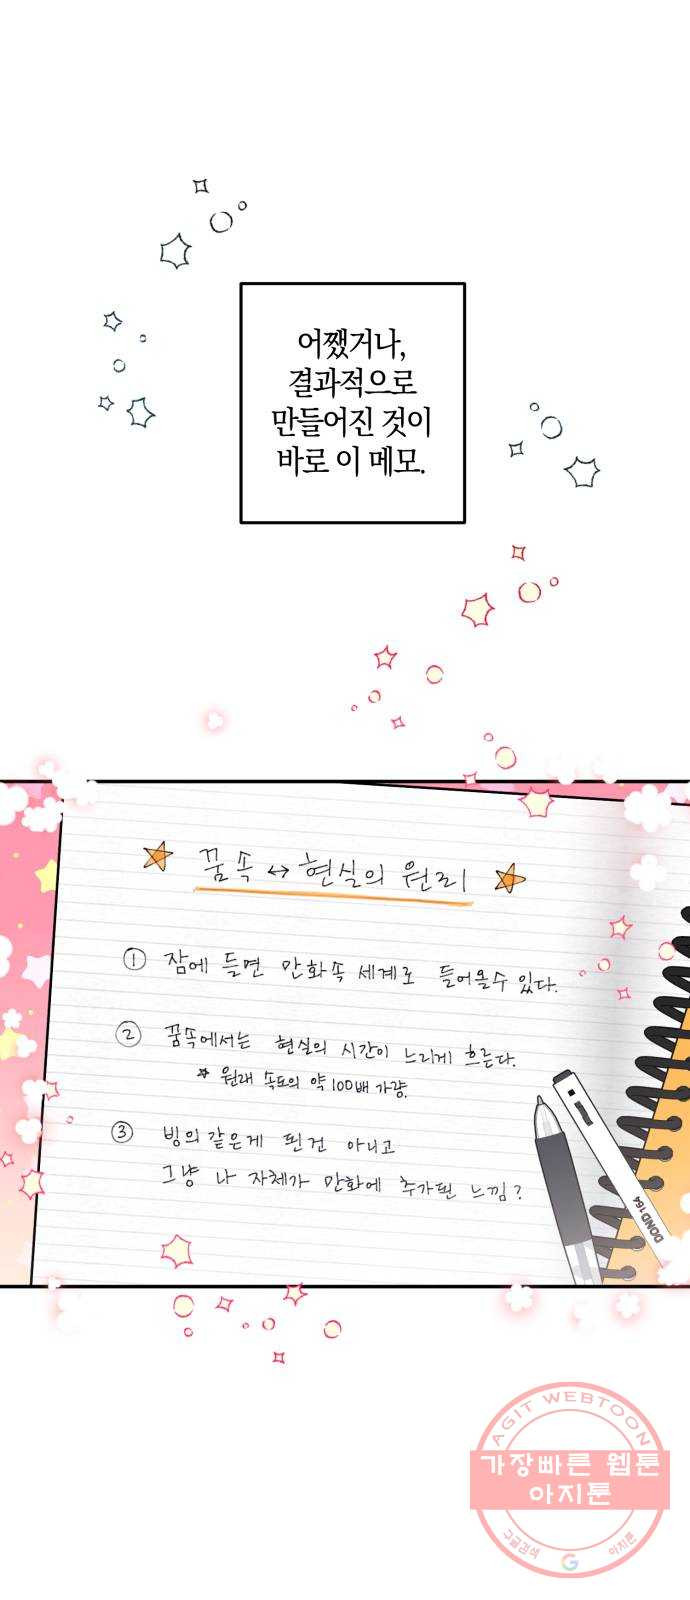 어쨌거나,
결과적으로
만들어진 것이
바로 이 메모.
꿈속 ↔ 현실의 원리
① 잠에 들면 만화속 세계로 들어올수 있다.
② 꿈속에서는 현실의 시간이 느리게 흐른다.
* 원래 속도의 약 100배 가량.
③ 빙의같은게 된건 아니고
그냥 나 자체가 만화에 추가된 느낌?
DOND164
AGIT WEBTOON
가장빠른 웹툰
아지툰
구글검색 G 아지툰